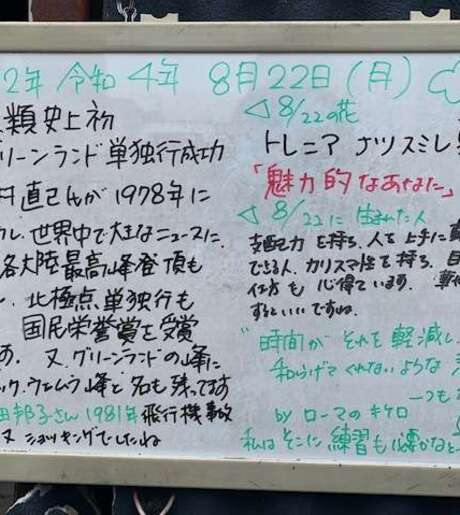 2年 令和4年 8月22日(月)
類史上初
リーンランド単独行成功
村直己さんが1978年に
し、世界中で大きなニュースに、
各大陸最高峰登頂も
、北極点単独行も
国民栄誉賞を受賞
す。又、グリーンランドの峰に
ック、ウエムラ峰と名も残ってます
田邦子さん1981年飛行機事故
又ショッキングでしたね
◁8/22の花
トレニア ナツスミレ
「魅力的なあなた」
◁8/22に生まれた人
支配力を持ち、人を上手に
できる人、カリスマ性を持ち、目
仕方も心得ています。
するといいですね。
"時間がそれを軽減し
和らげてくれないような
一つも
by ローマのキケロ
私はそこに練習も必要かなと